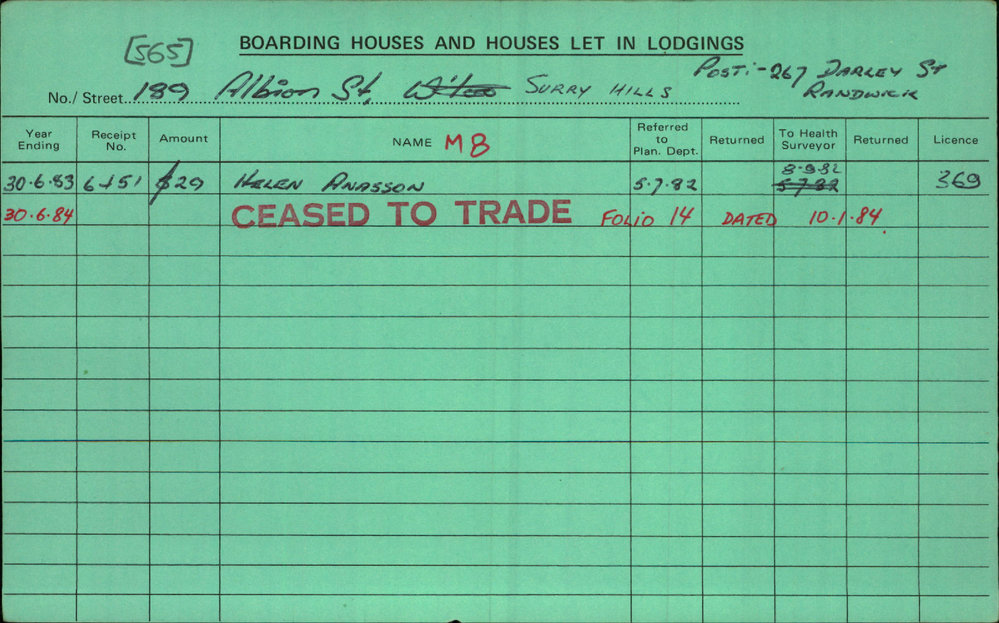 [565]
BOARDING HOUSES AND HOUSES LET IN LODGINGS
POST:- 267 DARLEY ST
RANDWICK
No./ Street 189 Albion St, SURRY HILLS
Year Ending Receipt No. Amount NAME MB Referred to Plan. Dept. Returned To Health Surveyor Returned Licence
30.6.83 6451 $29 HELEN ANASSON 5.7.82 8-9-82 5.7.82 369
30.6.84 CEASED TO TRADE FOLIO 14 DATED 10.1.84